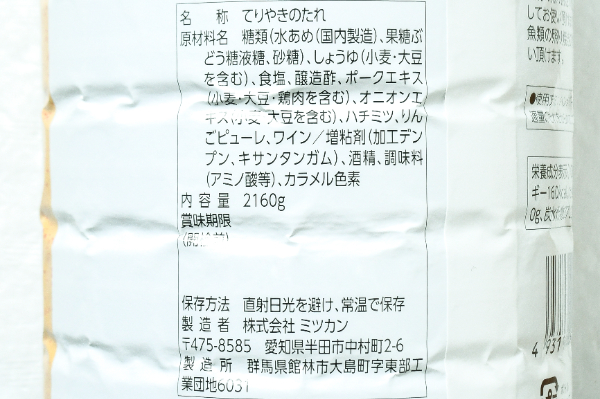 名 称 てりやきのたれ
原材料名 糖類(水あめ(国内製造)、果糖ぶ
どう糖液糖、砂糖)、しょうゆ(小麦・大豆
を含む)、食塩、醸造酢、ポークエキス
(小麦・大豆・鶏肉を含む)、オニオンエ
キス(小麦・大豆を含む)、ハチミツ、りん
ごピューレ、ワイン/増粘剤(加工デン
プン、キサンタンガム)、酒精、調味料
(アミノ酸等)、カラメル色素
内容量 2160g
賞味期限
保存方法 直射日光を避け、常温で保存
製造者 株式会社 ミツカン
〒475-8585 愛知県半田市中村町2-6
製造所 群馬県館林市大島町字東部工
業団地6031
してお使い
魚類の
い頂けます。
●使用
栄養成分表示
ギー160kcal
0g、炭水化物
4 931